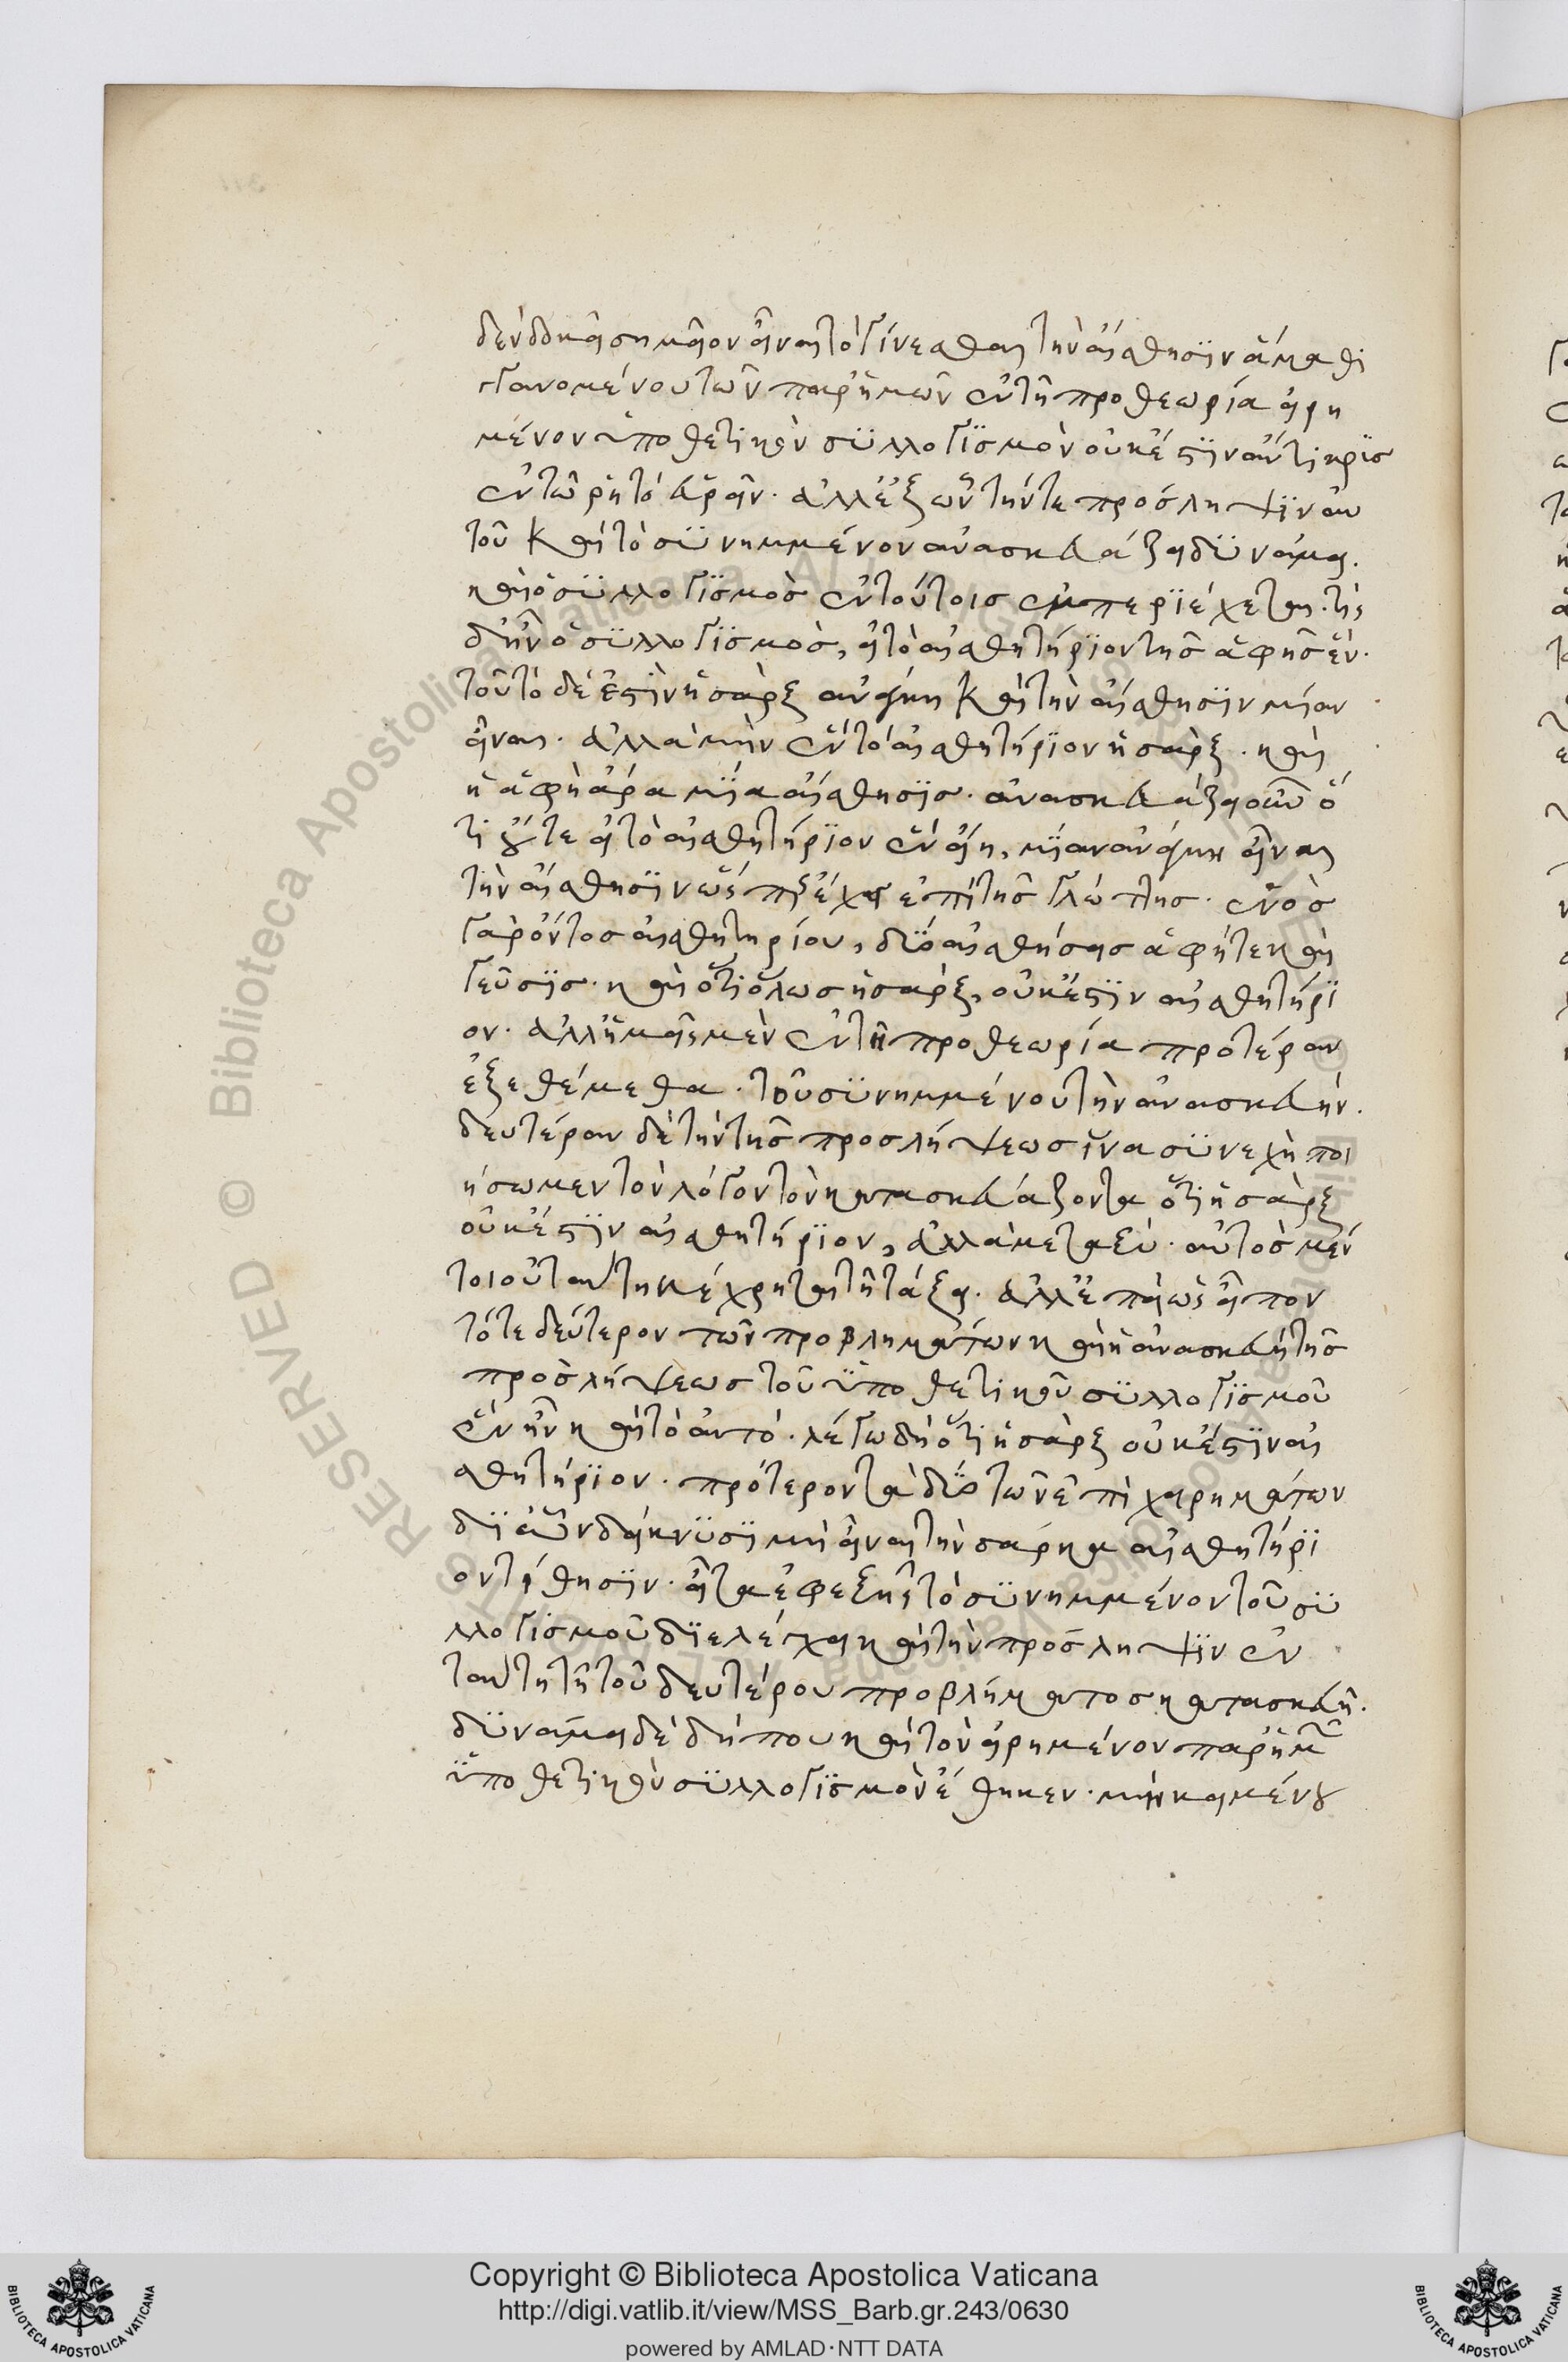 δὲν δοκεῖ σημεῖον εἶναι τὸ γίνεσθαι τὴν αἴσθησϊν ἅμα θι
γγανομένου τῶν παρ' ἡμῶν ἐν τῆ προθεωρία εἰρη
μένον ὑποθετικὸν σϋλλογϊσμὸν οὐκ έστϊν ἀντικρϊσ
ἐν τῶ ρητὸ εὑρεῖν. ἀλλ' ἐξ ὧν τήν τε πρόσληψϊν αὐ
τοῦ καὶ τὸ σϋνημμένον ἀνασκευάζει δϋνάμει.
καὶ ὁ σϋλλογϊσμὸσ ἐν τούτοισ ἐμπερϊέχεται. τίς
δ' ἦν ὁ σϋλλογϊσμὸσ, εἰ τὸ αἰσθητήρϊον τῆσ ἁφῆσ ἕν.
τοῦτο δέ ἐστϊν ἡ σὰρξ ἀνάγκη καὶ τὴν αἴσθησϊν μίαν
εἶναι. ἀλλὰ μὴν ἓν τὸ αἰσθητήρϊον ἡ σὰρξ. καὶ
ἡ ἁφὴ ἄρα μϊα αἴσθησϊσ. ἀνασκευάζει οὖν ὅ
τι οὔτε εἰ τὸ αἰσθητήρϊον ἓν εἴη, μϊαν ἀνάγκη εἶναι
τὴν αἴσθησϊν ὡς παρέχει ἐπὶ τῆσ γλώττησ. ἑνὸσ
γὰρ ὄντοσ αἰσθητηρίου, δύο αἰσθήσεισ ἁφή τε καὶ
γεῦσϊσ. καὶ ὅτι ὅλωσ ἡ σὰρξ, οὐκ έστϊν αἰσθητήρϊ
ον. ἀλλ' ἡμεῖς μὲν ἐν τῆ προθεωρία προτέραν
ἐξεθέμεθα. τοῦ σϋνημμένου τὴν ἀνασκευήν.
δευτέραν δὲ τὴν τῆσ προσλήψεωσ ἵνα σϋνεχὴ ποι
ήσωμεν τὸν λόγον τὸν κατασκευάζοντα ὅτι ἡ σὰρξ
οὐκ έστϊν αἰσθητήρϊον, ἀλλὰ μεταξύ. αὐτὸσ μέν
τοι οὐ ταύτη κέχρηται τῆ τάξει. ἀλλ' ἐπεὶ ὡς εἶπον
τό τε δεύτερον τῶν προβλημάτων καὶ ἡ ἀνασκευὴ τῆσ
προσλήψεωσ τοῦ ὑποθετικοῦ σϋλλογϊσμοῦ
ἓν ἦν καὶ τὸ αυτό. λέγω δὴ ὅτι ἡ σὰρξ οὐκ έστϊν αἰ
σθητήρϊον. πρότερον τὰ δύο τῶν ἐπιχειρημάτων
δϊ ὧν δείκνϋσϊ μὴ εἶναι τὴν σάρκα αἰσθητήρϊ
ον τίθησϊν. εἶτα ἐφεξῆς τὸ σϋνημμένον τοῦ σϋ
λλογισμοῦ δϊελέγχει καὶ τὴν πρόσληψϊν ἐν
ταύτη τῆ τοῦ δευτέρου προβλήματοσ κατασκευῆ.
δϋνάμει δὲ δήπου καὶ τὸν εἰρημένον παρ' ἡμῶν
ὑποθετικὸν σϋλλογϊσμὸν έθηκεν. μὴ κειμένου
Copyright © Biblioteca Apostolica Vaticana
http://digi.vatlib.it/view/MSS_Barb.gr.243/0630
powered by AMLAD·NTT DATA